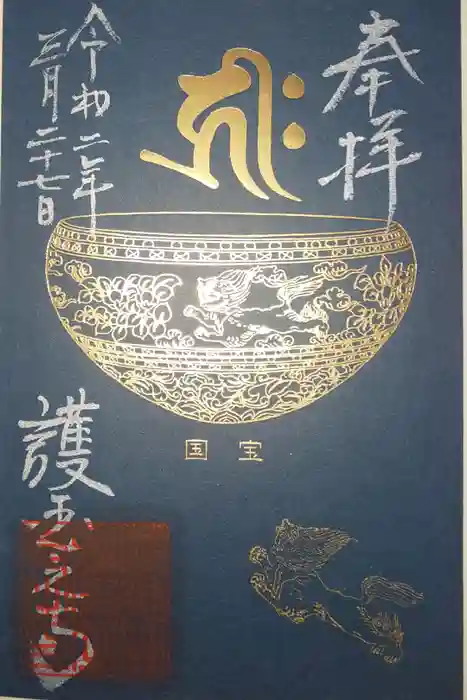 奉拝
令和二年
三月二十七日
国宝
護国之寺